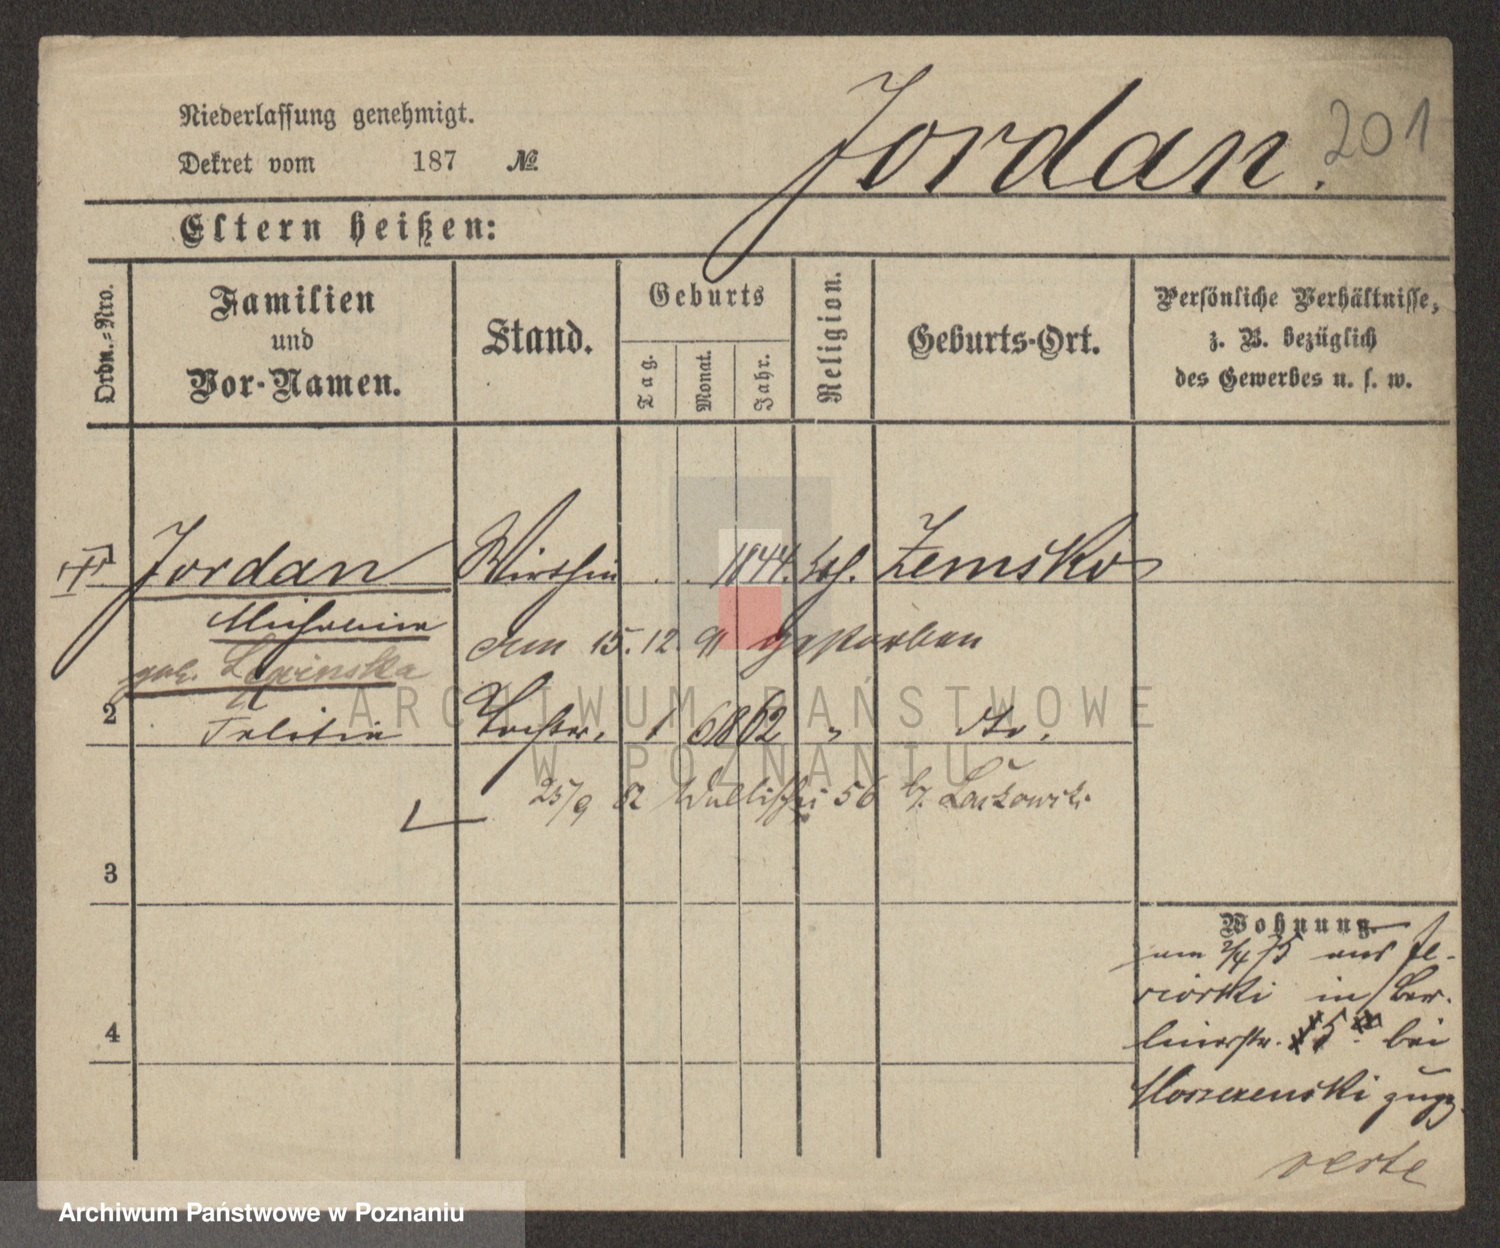 Jordan. 201
Niederlassung genehmigt.
Dekret vom 187 №
Eltern heißen:
Ordn.-Nro.
Familien und Vor-Namen.
Stand.
Geburts
Tag. Monat. Jahr.
Religion.
Geburts-Ort.
Persönliche Verhältnisse, z. B. bezüglich des Gewerbes u. s. w.
Jordan Wirthin 1844. kath. Zemsko
am 15. 12. 91 gestorben
geb.
2 Tochter. 1 6 62 " dto.
25/9 82 Wallischei 56 b/
3
Wohnung.
am 2/4 75 aus Je-
in Ber-
4
linerstr. bei
zugz.
verte
ARCHIWUM PAŃSTWOWE
W POZNANIU
Archiwum Państwowe w Poznaniu